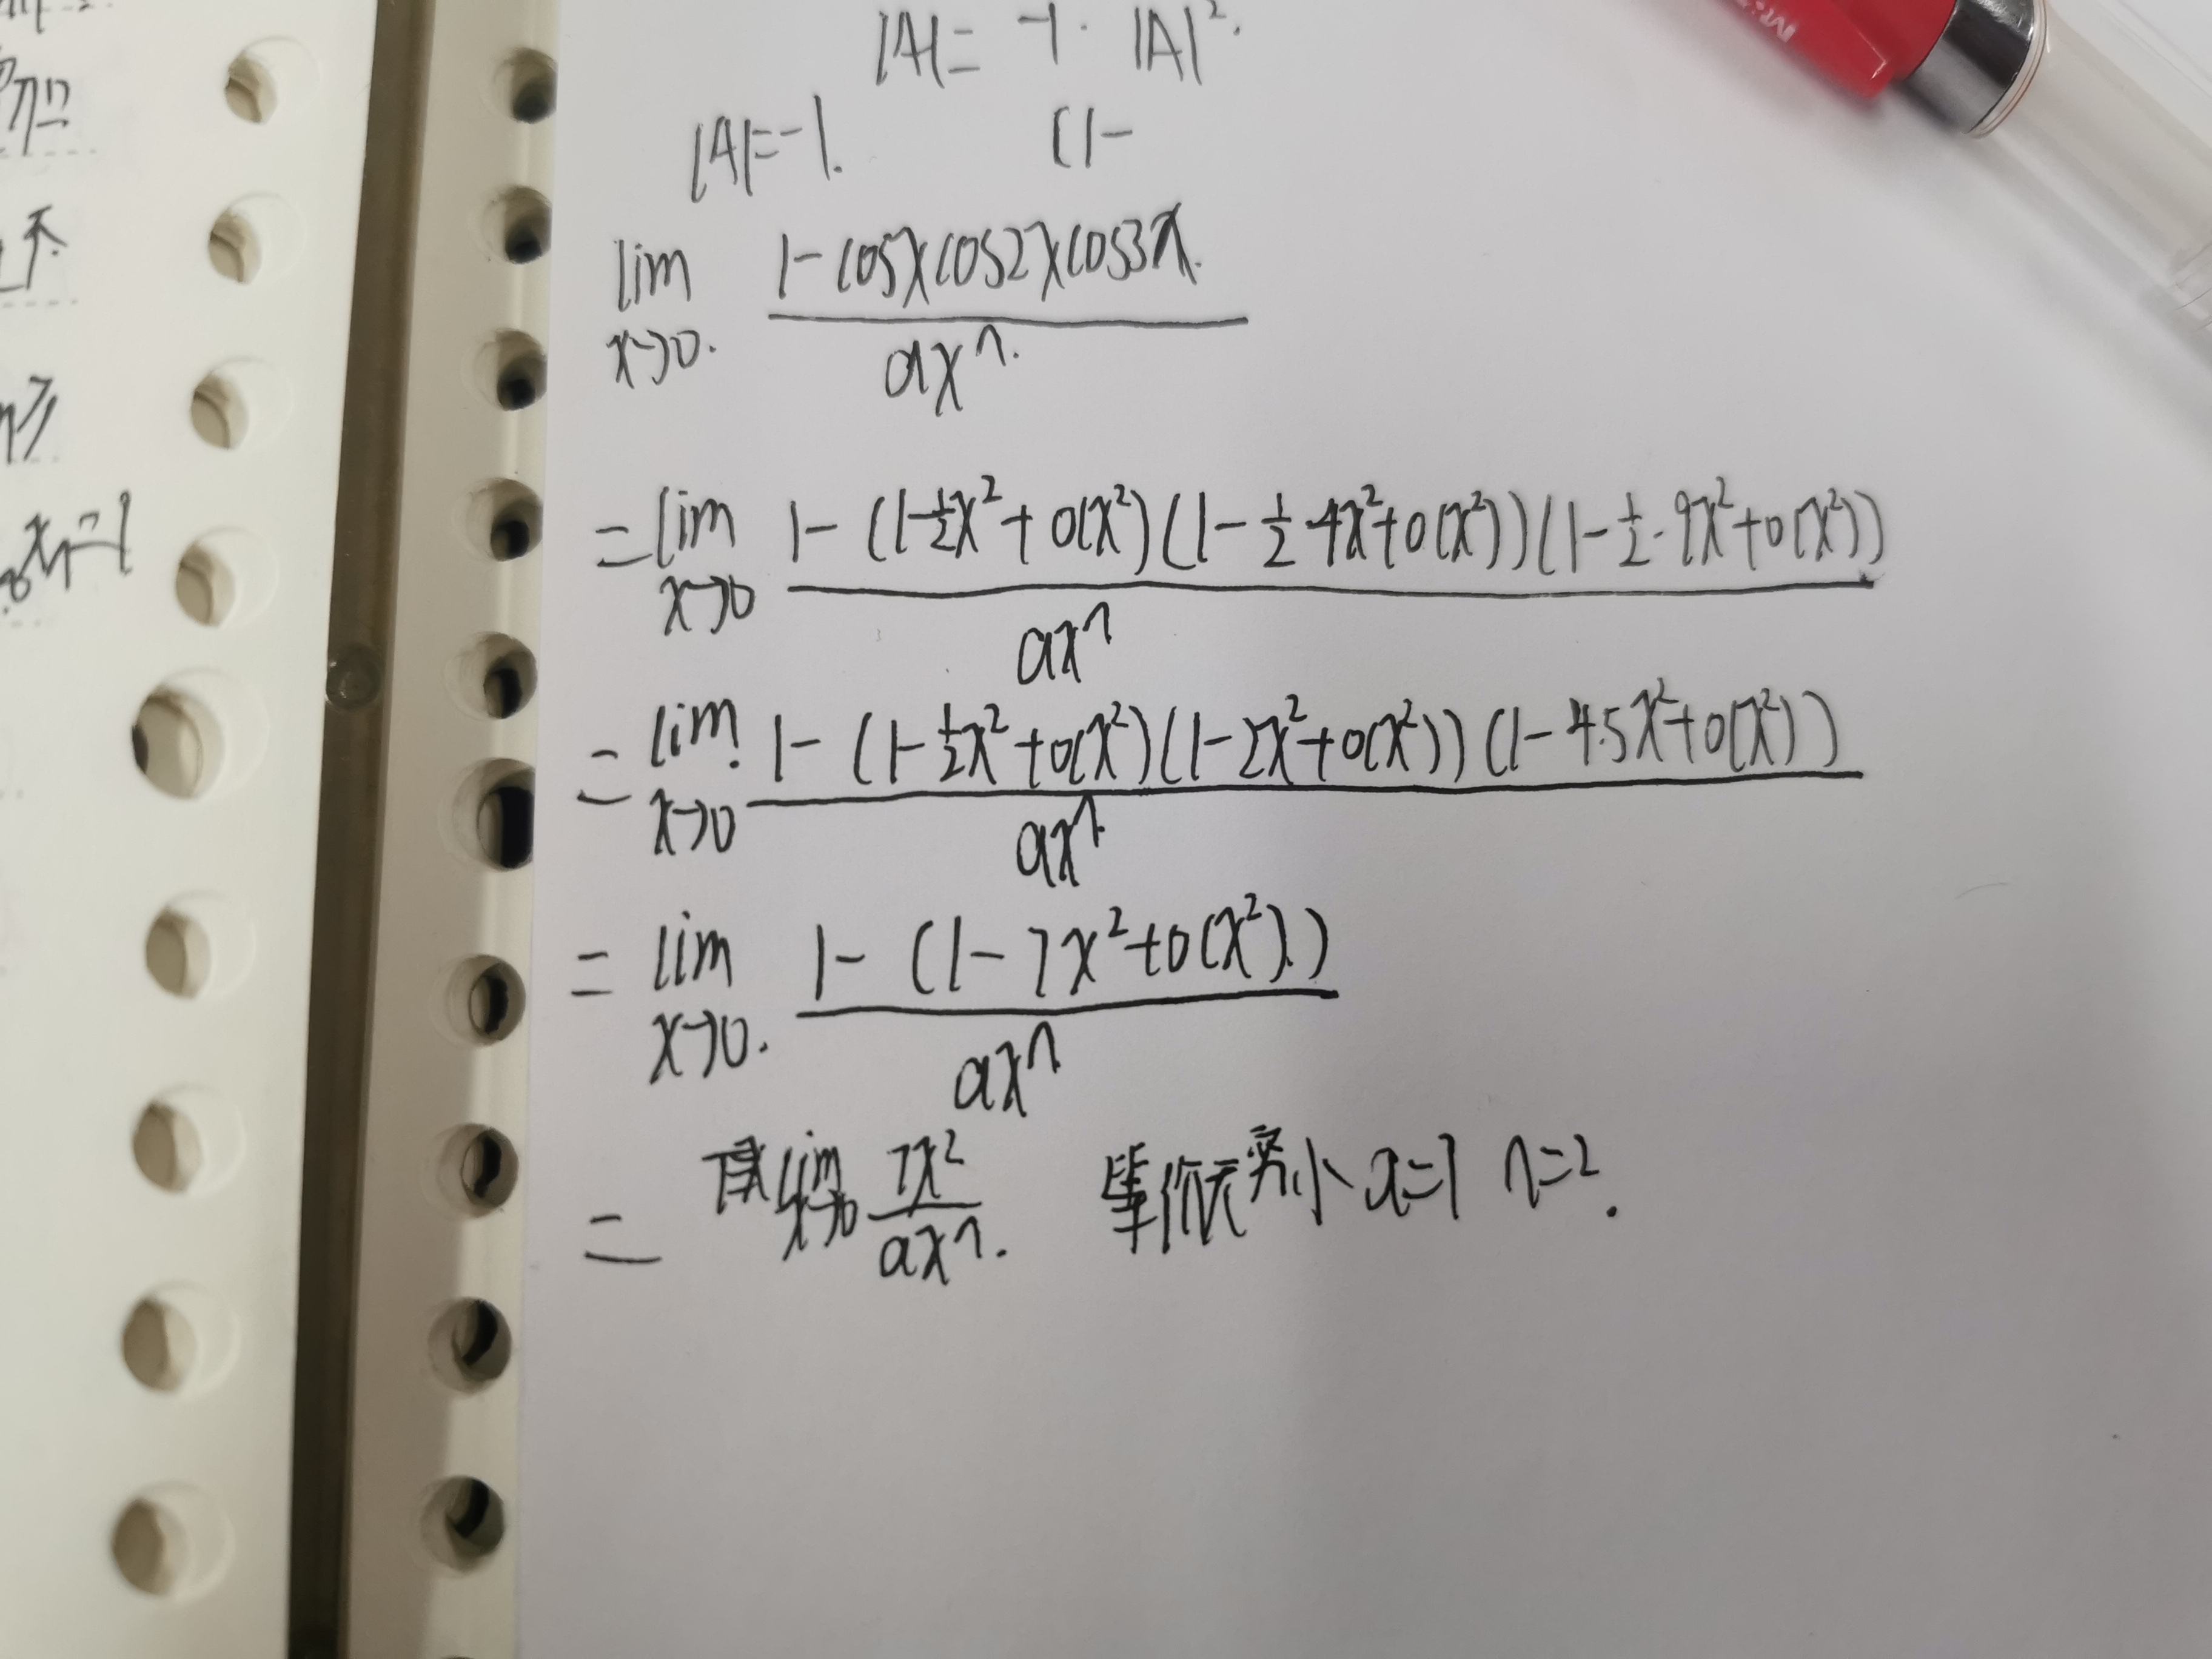 |A|= -1· |A|².
|A|=-1. (1-
lim x→0. 1-cosxcos2xcos3x. / axⁿ.
=lim x→0 1-(1-½x²+o(x²)(1-½·4x²+o(x²))(1-½·9x²+o(x²)) / axⁿ
= lim. x→0 1-(1-½x²+o(x²)(1-2x²+o(x²))(1-4.5x²+o(x²)) / axⁿ
= lim x→0. 1-(1-7x²+o(x²).) / axⁿ
= lim x→0 7x² / axⁿ. 等价无穷小 a=7 n=2.